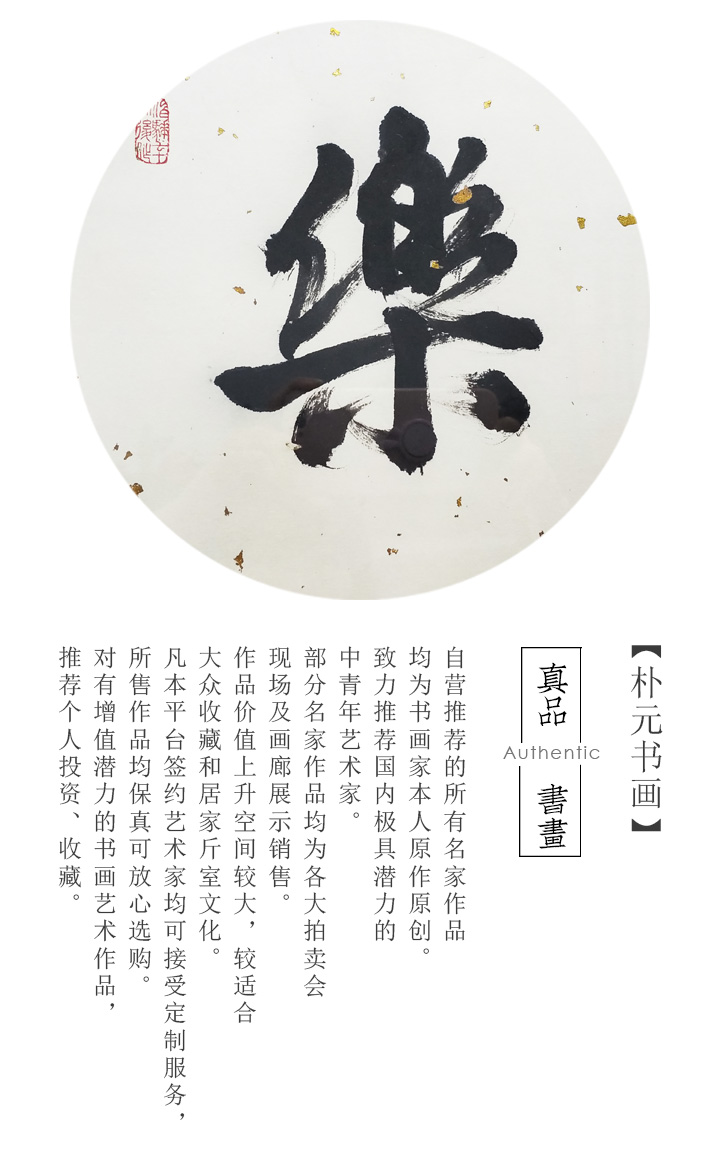 樂
【朴元书画】
真品
Authentic
書畫
自营推荐的所有名家作品
均为书画家本人原作原创。
致力推荐国内极具潜力的
中青年艺术家。
部分名家作品均为各大拍卖会
现场及画廊展示销售。
作品价值上升空间较大，较适合
大众收藏和居家斤室文化。
凡本平台签约艺术家均可接受定制服务，
所售作品均保真可放心选购。
对有增值潜力的书画艺术作品，
推荐个人投资、收藏。